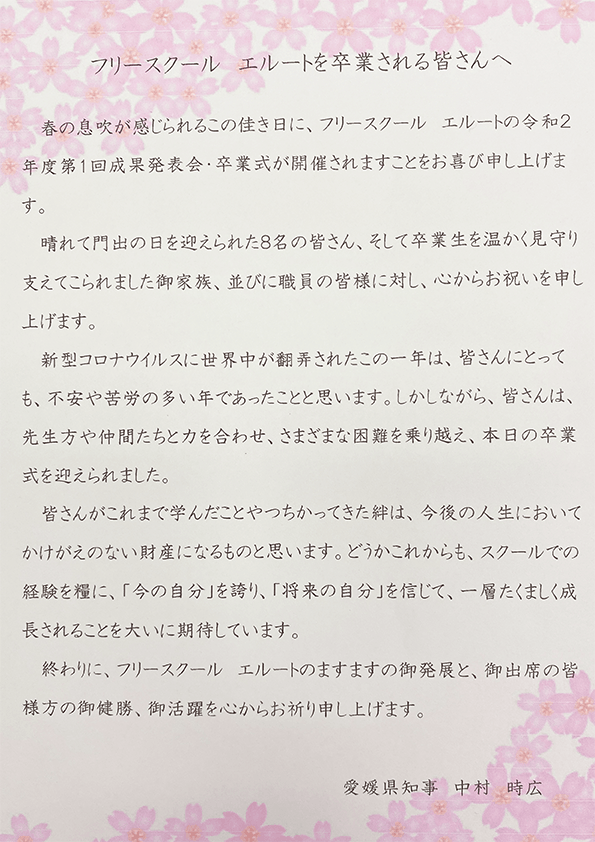 フリースクール　エルートを卒業される皆さんへ
春の息吹が感じられるこの佳き日に、フリースクール　エルートの令和２
年度第１回成果発表会・卒業式が開催されますことをお喜び申し上げま
す。
晴れて門出の日を迎えられた８名の皆さん、そして卒業生を温かく見守り
支えてこられました御家族、並びに職員の皆様に対し、心からお祝いを申し
上げます。
新型コロナウイルスに世界中が翻弄されたこの一年は、皆さんにとって
も、不安や苦労の多い年であったことと思います。しかしながら、皆さんは、
先生方や仲間たちと力を合わせ、さまざまな困難を乗り越え、本日の卒業
式を迎えられました。
皆さんがこれまで学んだことやつちかってきた絆は、今後の人生において
かけがえのない財産になるものと思います。どうかこれからも、スクールでの
経験を糧に、「今の自分」を誇り、「将来の自分」を信じて、一層たくましく成
長されることを大いに期待しています。
終わりに、フリースクール　エルートのますますの御発展と、御出席の皆
様方の御健勝、御活躍を心からお祈り申し上げます。
愛媛県知事　中村　時広